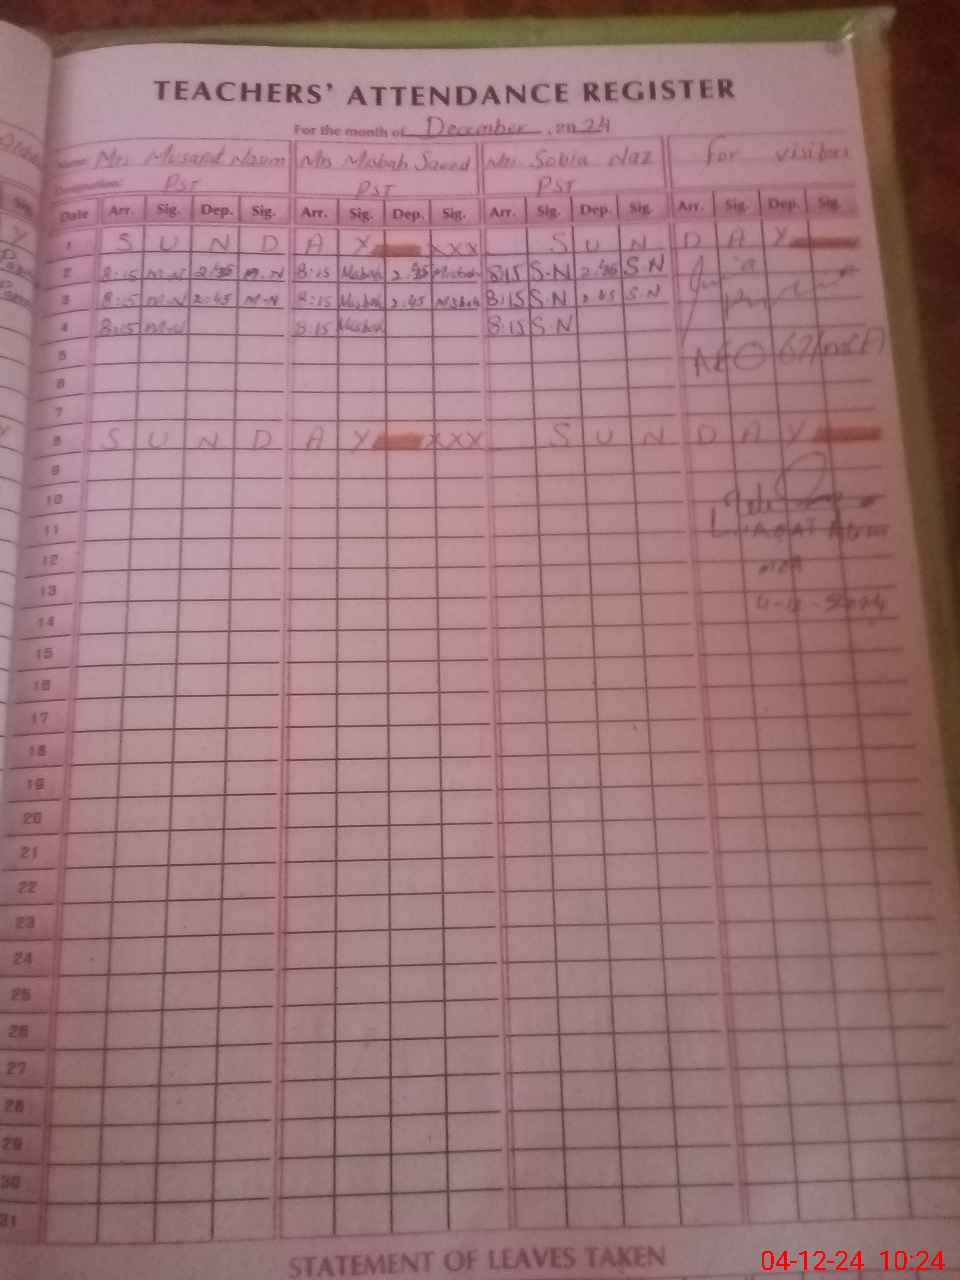 TEACHERS' ATTENDANCE REGISTER
For the month of December, 2024
Name: Mrs Musarat Naum Mrs Misbah Saeed Mrs Sobia Naz For visitors
Designation: PST PST PST
Date Arr. Sig. Dep. Sig. Arr. Sig. Dep. Sig. Arr. Sig. Dep. Sig. Arr. Sig. Dep. Sig.
1 S U N D A Y XXX S U N D A Y
2 8:15 M-N M-N 8:15 Misbah Misbah 8:15 S.N S.N
3 8:15 M-N 2:45 M-N 8:15 Misbah 2:45 Misbah 8:15 S.N 2:45 S.N
4 8:15 M-N 8:15 Misbah 8:15 S.N
5 AEO
6
7
8 S U N D A Y XXX S U N D A Y
9
10
11 LIAQAT
12 MEA
13
14
15
16
17
18
19
20
21
22
23
24
25
26
27
28
29
30
31
STATEMENT OF LEAVES TAKEN
04-12-24 10:24